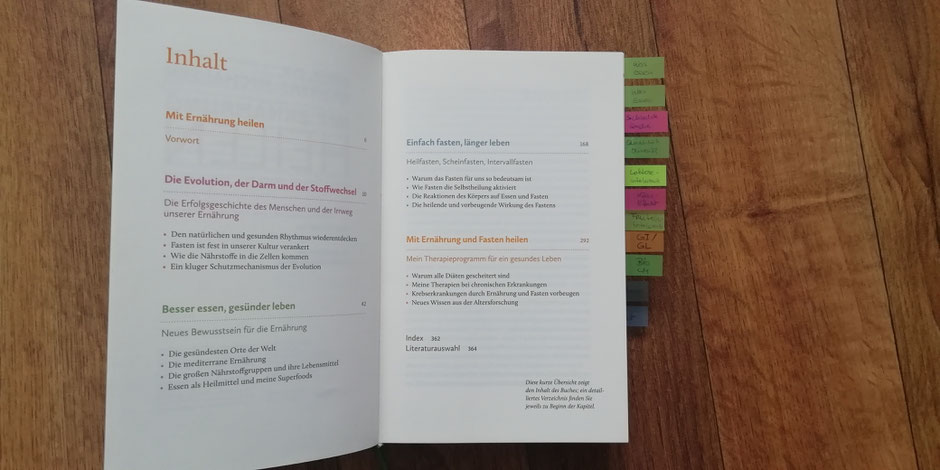 Inhalt
Mit Ernährung heilen
Vorwort 6
Die Evolution, der Darm und der Stoffwechsel 10
Die Erfolgsgeschichte des Menschen und der Irrweg
unserer Ernährung
• Den natürlichen und gesunden Rhythmus wiederentdecken
• Fasten ist fest in unserer Kultur verankert
• Wie die Nährstoffe in die Zellen kommen
• Ein kluger Schutzmechanismus der Evolution
Besser essen, gesünder leben 42
Neues Bewusstsein für die Ernährung
• Die gesündesten Orte der Welt
• Die mediterrane Ernährung
• Die großen Nährstoffgruppen und ihre Lebensmittel
• Essen als Heilmittel und meine Superfoods
Einfach fasten, länger leben 168
Heilfasten, Scheinfasten, Intervallfasten
• Warum das Fasten für uns so bedeutsam ist
• Wie Fasten die Selbstheilung aktiviert
• Die Reaktionen des Körpers auf Essen und Fasten
• Die heilende und vorbeugende Wirkung des Fastens
Mit Ernährung und Fasten heilen 292
Mein Therapieprogramm für ein gesundes Leben
• Warum alle Diäten gescheitert sind
• Meine Therapien bei chronischen Erkrankungen
• Krebserkrankungen durch Ernährung und Fasten vorbeugen
• Neues Wissen aus der Altersforschung
Index 362
Literaturauswahl 364
Diese kurze Übersicht zeigt
den Inhalt des Buches, ein detail-
liertes Verzeichnis finden Sie
jeweils zu Beginn der Kapitel.
GI/
GL